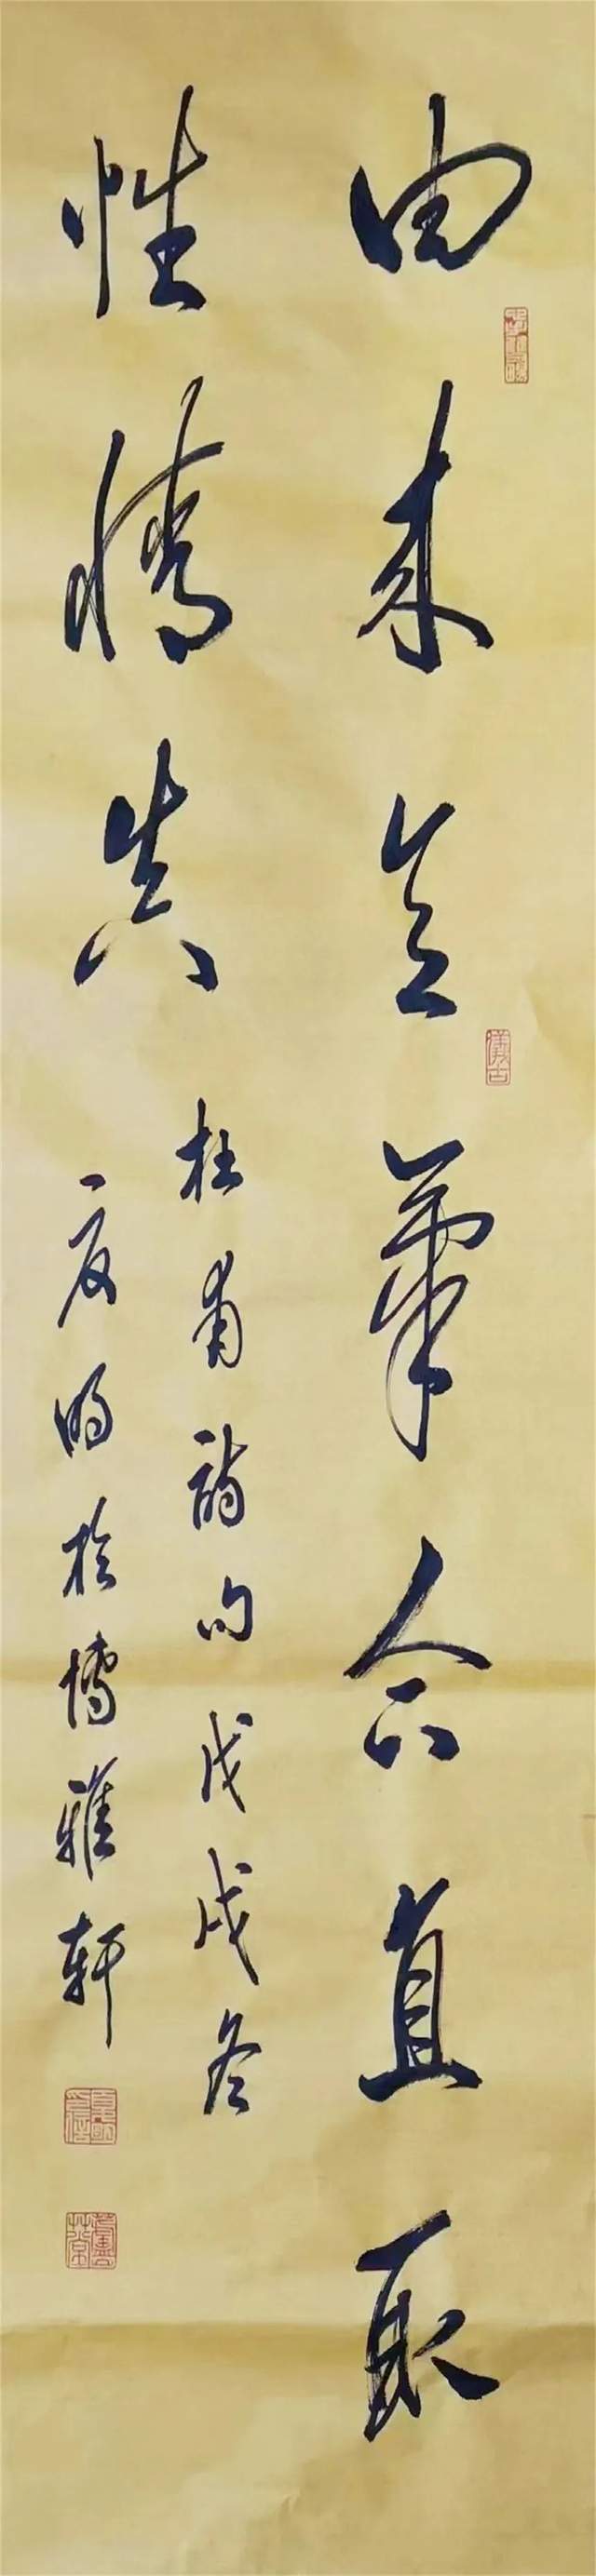 由来意氣合直取
性情真
杜甫詩句戊戌冬
夏明於博雅軒